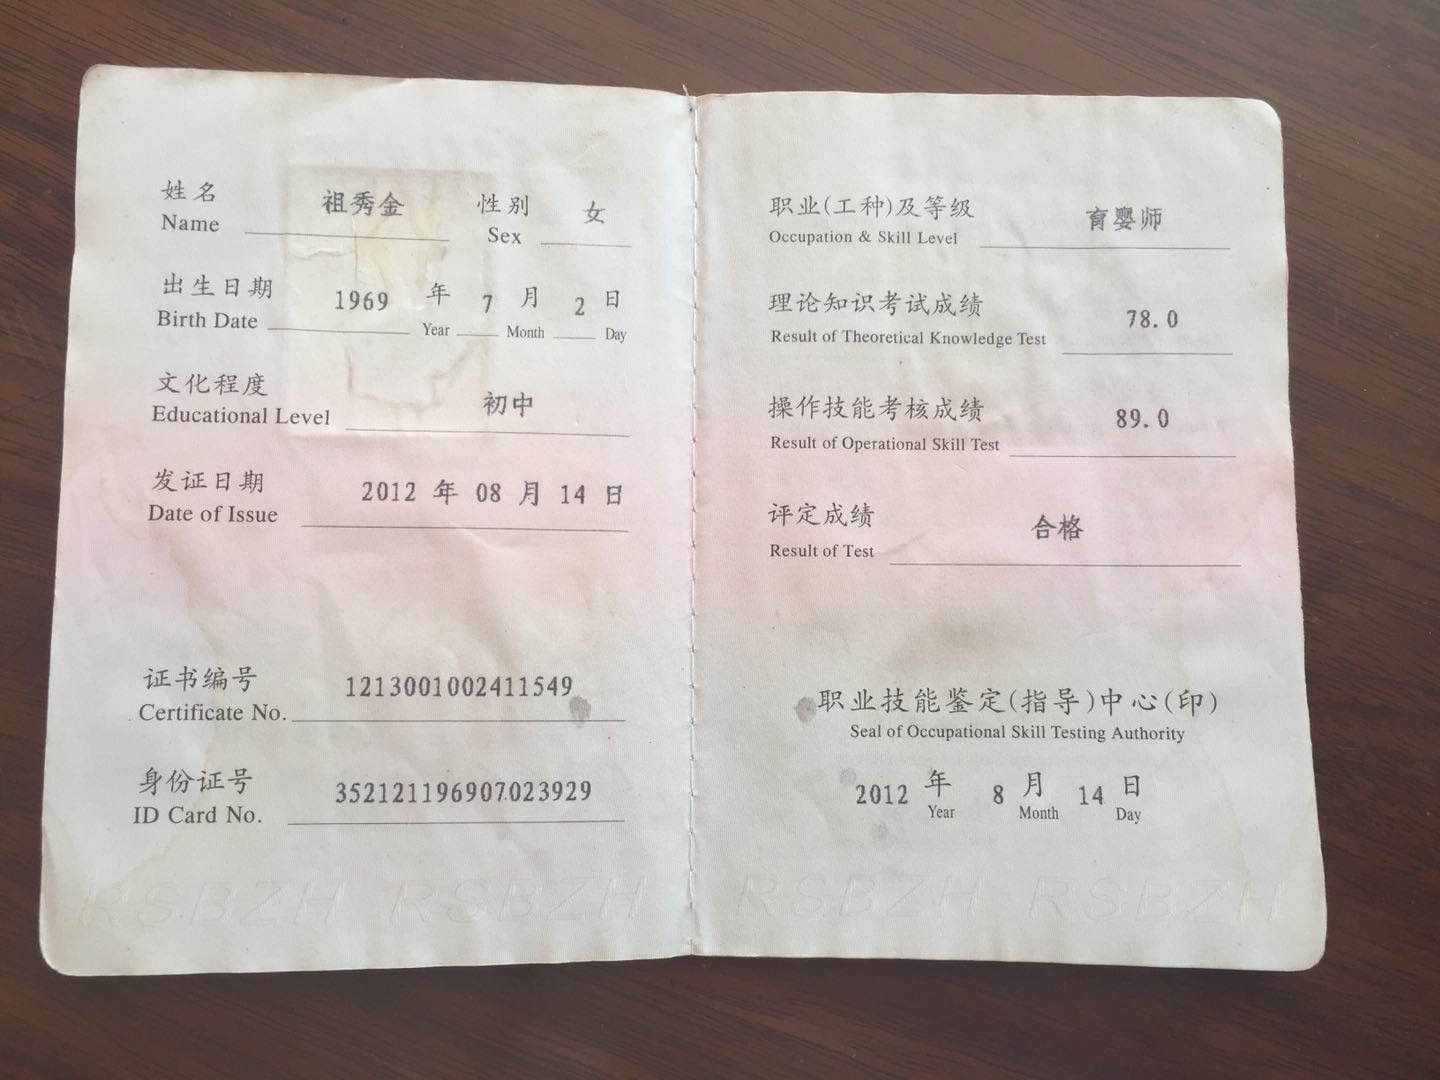 姓名 祖秀金 性别 女
Name Sex
出生日期 1969 年 7 月 2 日
Birth Date Year Month Day
文化程度 初中
Educational Level
发证日期 2012 年 08 月 14 日
Date of Issue
证书编号 1213001002411549
Certificate No.
身份证号 352121196907023929
ID Card No.
RSBZH RSBZH
职业(工种)及等级 育婴师
Occupation & Skill Level
理论知识考试成绩 78.0
Result of Theoretical Knowledge Test
操作技能考核成绩 89.0
Result of Operational Skill Test
评定成绩 合格
Result of Test
职业技能鉴定(指导)中心(印)
Seal of Occupational Skill Testing Authority
2012 年 8 月 14 日
Year Month Day
RSBZH RSBZH